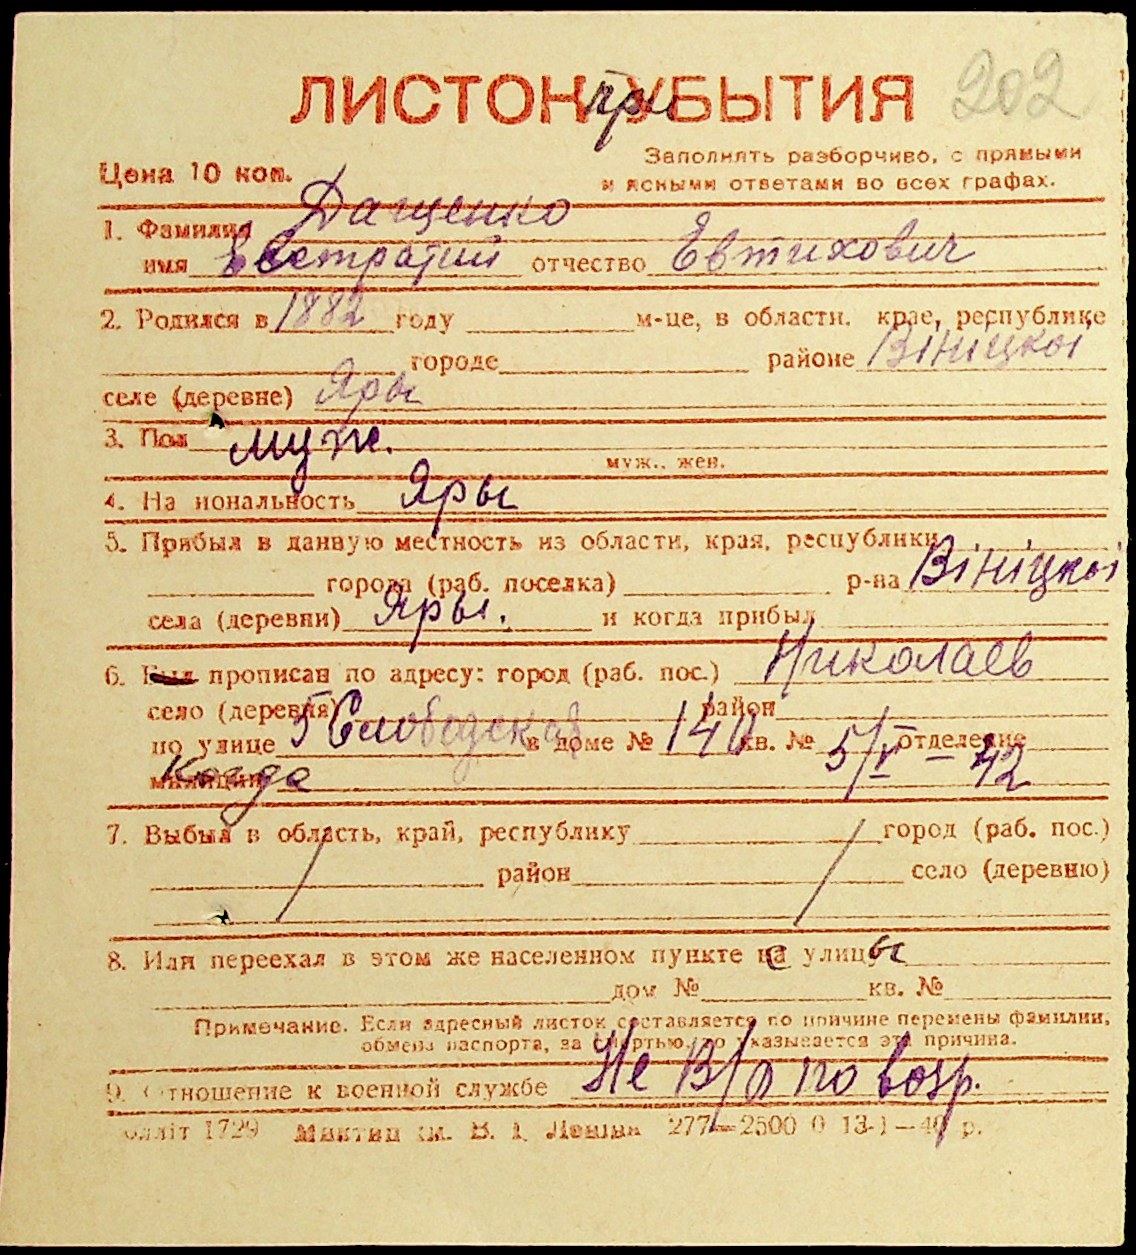 ЛИСТОК при УБЫТИЯ 202
Цена 10 коп.
Заполнять разборчиво, с прямыми
и ясными ответами во всех графах.
1. Фамилия Дащенко
имя Евстратий отчество Евтихович
2. Родился в 1882 году м-це, в области. крае, республике
городе районе Вініцкоі
селе (деревне) Яры
3. Пол муж.
муж., жен.
4. Национальность Яры
5. Прибыл в данную местность из области, края, республики
города (раб. поселка) р-на Вініцкоі
села (деревни) Яры. и когда прибыл
6. Был прописан по адресу: город (раб. пос.) Николаев
село (деревня) район
по улице 5 Слободская в доме № 140 кв. № отделение
милиции Когда 5/V – 42
7. Выбыл в область, край, республику город (раб. пос.)
район село (деревню)
8. Или переехал в этом же населенном пункте с улицы
дом № кв. №
Примечание. Если адресный листок составляется по причине перемены фамилии,
обмена паспорта, за смертью, то указывается эта причина.
9. Отношение к военной службе Не в/о по возр.
1729 им. В. І. Леніна 277–2500 0 13-1–40 р.